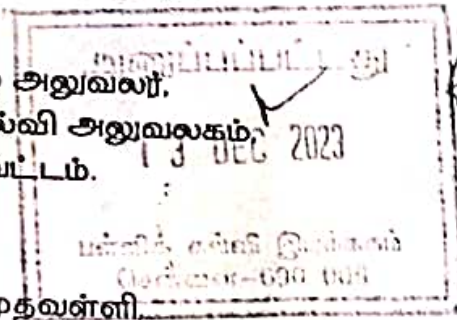 அலுவலர்,
அனுப்பப்பட்டது
ல்வி அலுவலகம்,
13 DEC 2023
வட்டம்.
பள்ளிக் கல்வி இயக்ககம்
சென்னை-600 006
முதவள்ளி,